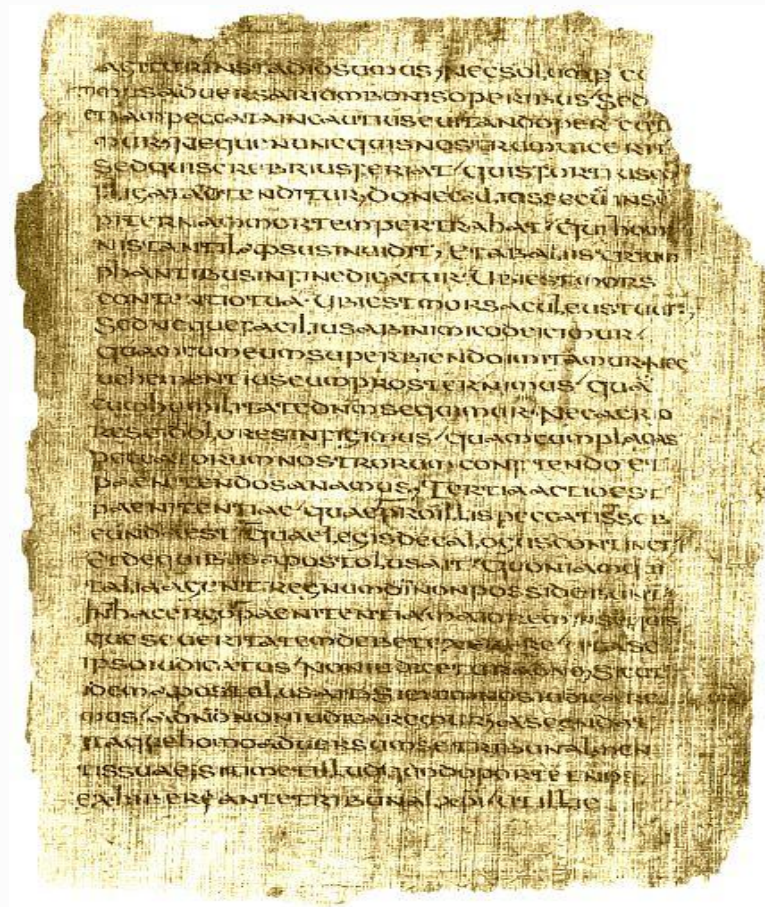 AGITURINSTADIOSUMUS;NECSOLUMP CU
MUSADUERSARIUMBONISOPERIBUS/SED
ETIAMPECCATAINCAUTIUSEUITANDOPERCUTI
MUR;NEQUENUNCQUISNOSTRUMUICERIT
SEDQUISCREBRIUSFERIAT/QUISFORTIUSCO
FLIGATADTENDITUR;DONECALIOSSECŪINSE
PITERNAMMORTEMPERTRAHAT/QUIHOMI
NISTANTILAPSUSINUIDIT;ETABALIISTRIUM
PHANTIBUSINFINEDICATUR·UBIESTMORS
CONTENTIOTUA·UBIESTMORSACULEUSTUUS;
SEDNEQUEFACILIUSABINIMICODEICIMUR/
QUAMCUMEUMSUPERBIENDOIMITAMUR·NEC
UEHEMENTIUSEUMPROSTERNIMUS/QUĀ
CUMHUMILITATEDNMSEQUIMUR·NECACRIO
RESEIDOLORESINFIGIMUS/QUAMCUMPLAGAS
PECCATORUMNOSTRORUMCONFITENDOET
PAENITENDOSANAMUS;TERTIAACTIOEST
PAENITENTIAE/QUAEPROILLISPECCATISSUB
EUNDAEST/QUAELEGISDECALOGUSCONTINET/
ETDEQUIBUSAPOSTOLUSAIT/QUONIAMQUI
TALIAAGENTREGNUMDĪNONPOSSIDEBUNT
INHACERGOPAENITENTIAMAIOREMINSEQUIS
QUESEUERITATEMDEBETEXERERE/UTASE
IPSOIUDICATUS/NONIUDICETURADNO;SICUT
IDEMAPOSTOLUSAITSIENIMNOSIUDICARE
MUS/ADNŌNONIUDICAREMUR;ASCENDAT
ITAQUEHOMOADUERSUMSETRIBUNALMEN
TISSUAE;SITIMETILLUDQUODOPORTETNOS
EXHIBERIANTETRIBUNALXPI/UTILLIC